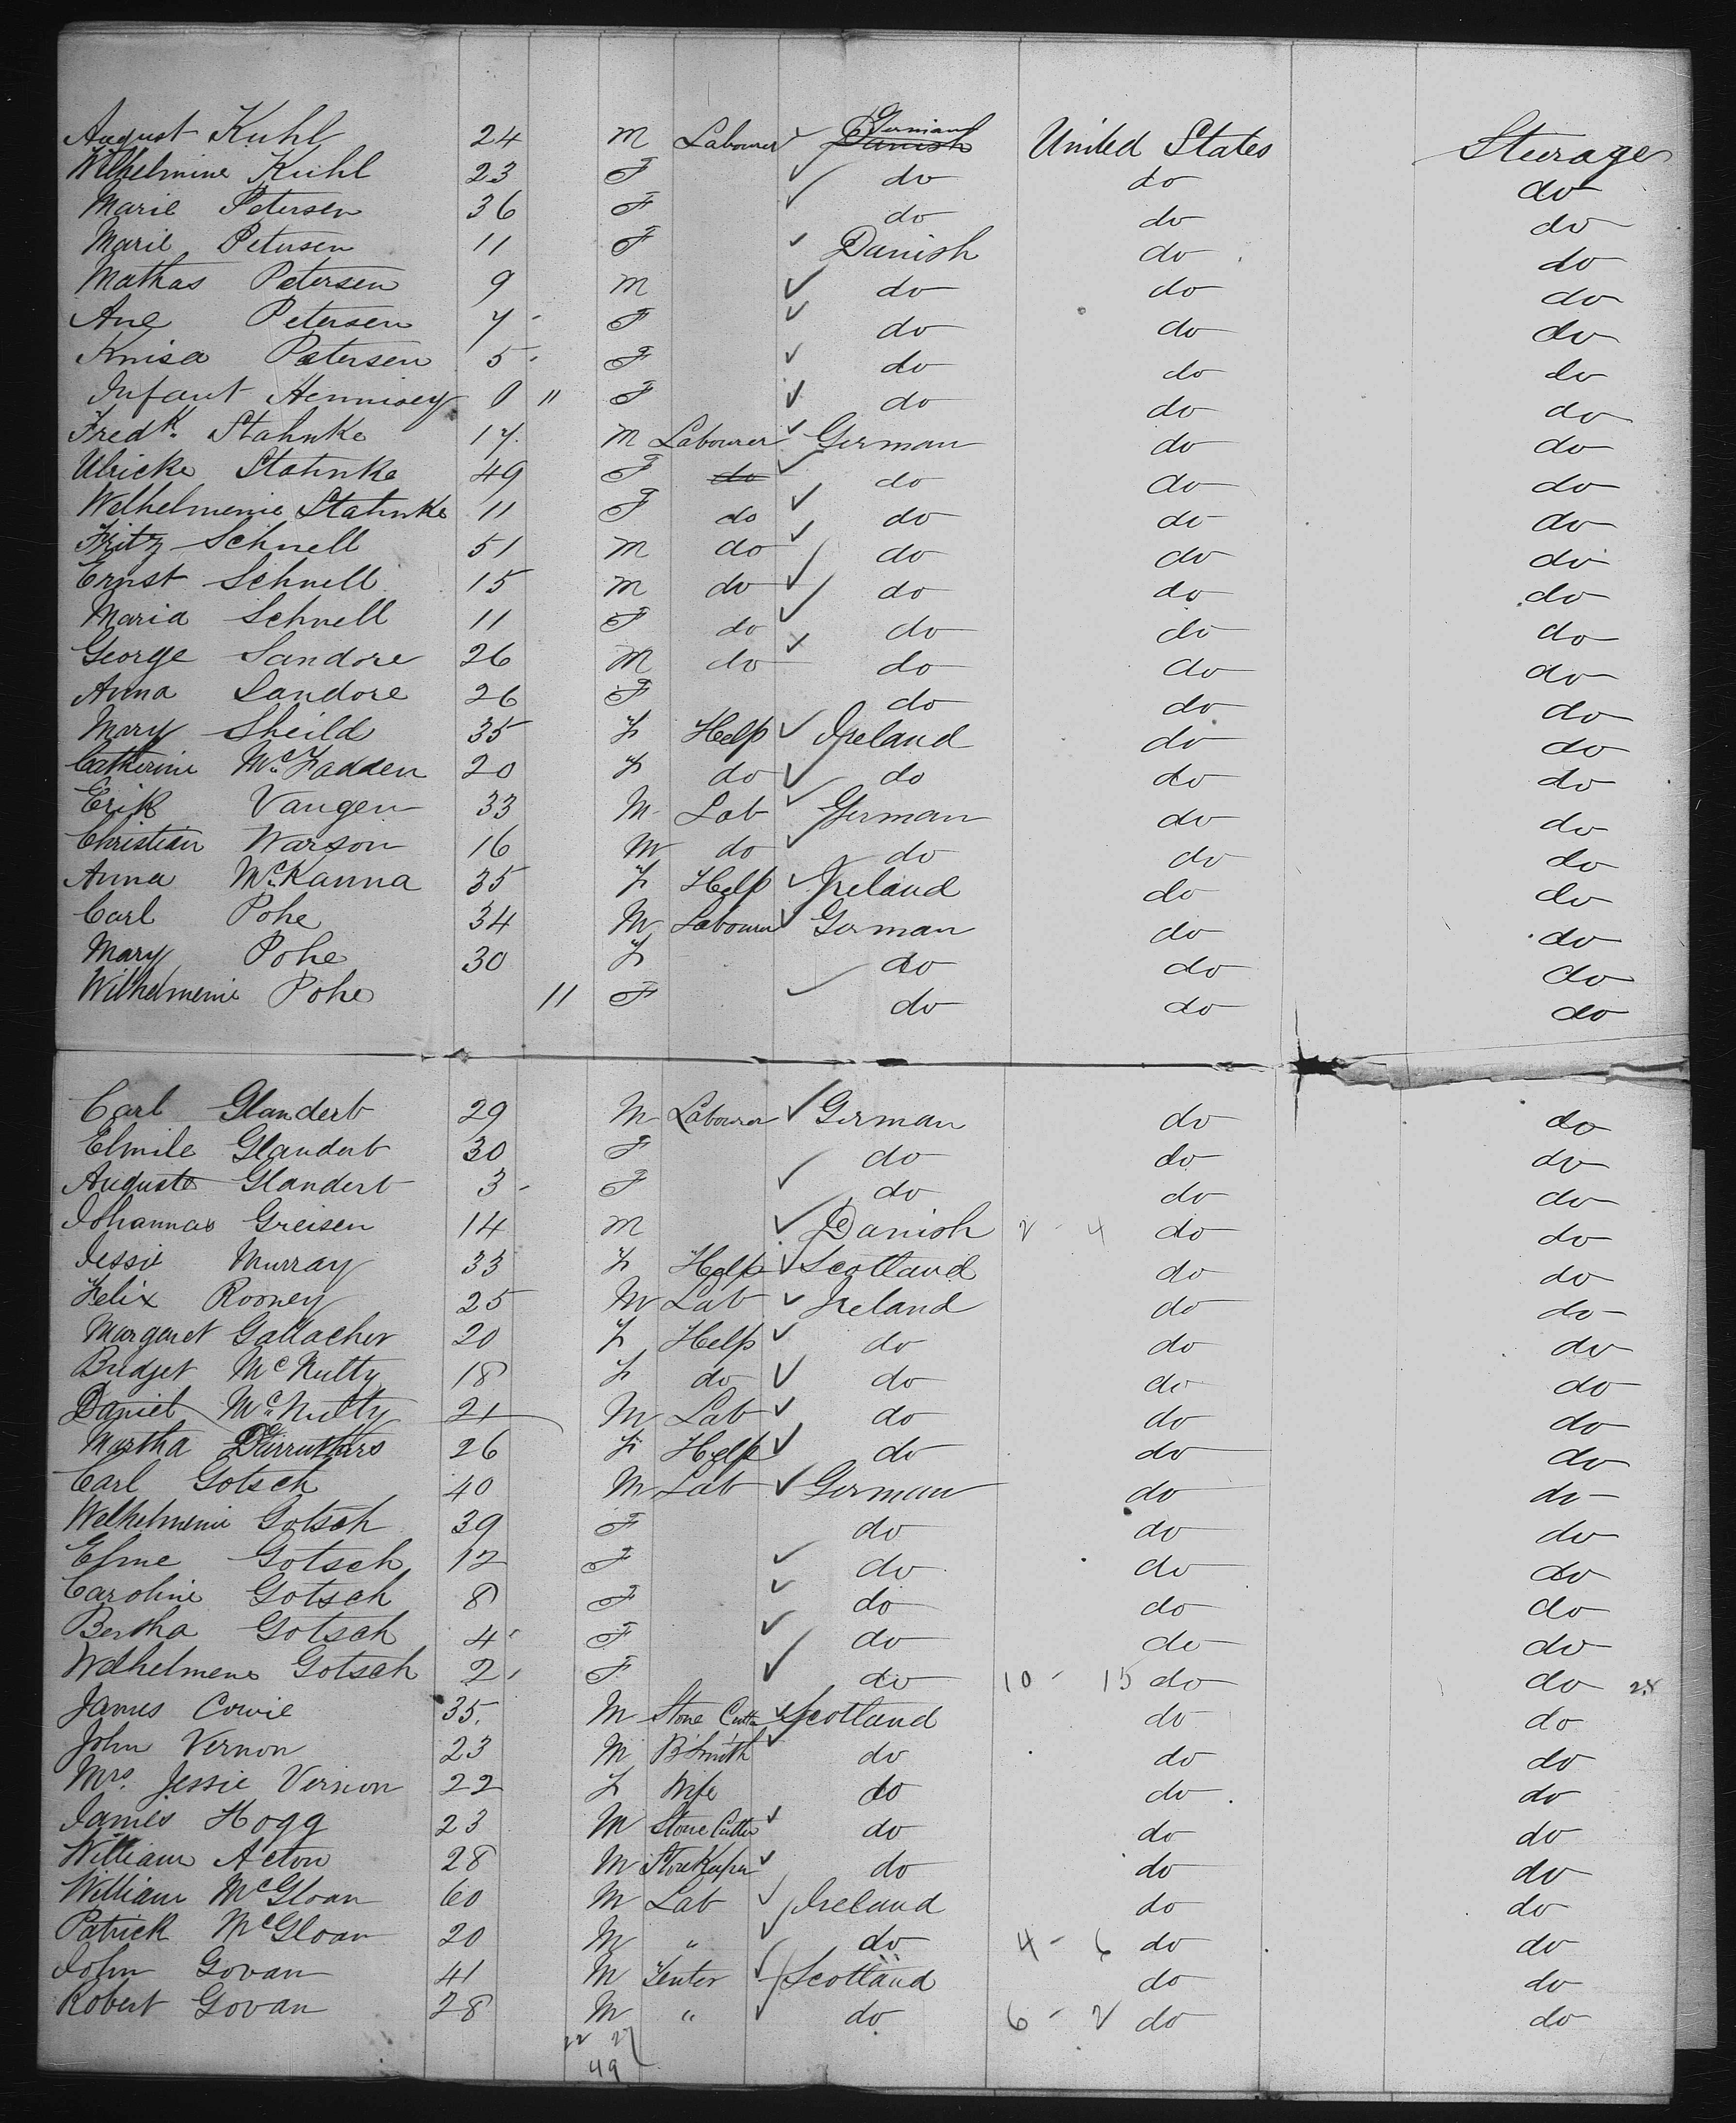 August Kuhl 24 M Labourer German Danish United States Steerage
Wilhelmine Kuhl 23 F do do do
Marie Petersen 36 F do do do
Marie Petersen 11 F Danish do do
Mathas Petersen 9 M do do do
Ane Petersen 7 F do do do
Petersen 5 F do do do
Infant Hennisey 0 11 F do do do
Fredk. Stahnke 17 M Labourer German do do
Ulricke Stahnke 49 F do do do do
Welhelmenie Stahnke 11 F do do do do
Fritz Schnell 51 M do do do do
Ernst Schnell 15 M do do do do
Maria Schnell 11 F do do do do
George Sandore 26 M do do do do
Anna Sandore 26 F do do do
Mary Sheild 35 F Help Ireland do do
Catherine McFadden 20 F do do do do
Erik Vangen 33 M Lab German do do
Christian Warson 16 M do do do do
Anna McKanna 35 F Help Ireland do do
Carl Pohe 34 M Labourer German do do
Mary Pohe 30 F do do do
Wilhelmenie Pohe 11 F do do do
Carl Glandert 29 M Labourer German do do
Elmile Glandert 30 F do do do
Auguste Glandert 3 F do do do
Johannas Greisen 14 M Danish 2 - 4 do do
Jessie Murray 33 F Help Scotland do do
Felix Rooney 25 M Lab Ireland do do
Margaret Gallacher 20 F Help do do do
Bridget McNulty 18 F do do do do
Daniel McNulty 21 M Lab do do do
Martha 26 F Help do do do
Carl Gotsch 40 M Lab German do do
Welhelmenie Gotsch 39 F do do do
Gotsch 12 F do do do
Caroline Gotsch 8 F do do do
Bertha Gotsch 4 F do do do
Welhelmene Gotsch 2 F do 10 - 15 do do 28
James Cowie 35 M Stone Cutter Scotland do do
John Vernon 23 M B'Smith do do do
Mrs. Jessie Vernon 22 F Wife do do do
James Hogg 23 M Stone Cutter do do do
William Acton 28 M StoreKeeper do do do
William McGloan 60 M Lab Ireland do do
Patrick McGloan 20 M " do 4 - 6 do do
John Govan 41 M Scotland do do
Robert Govan 28 M " do 6 - 2 do do
22 27
49